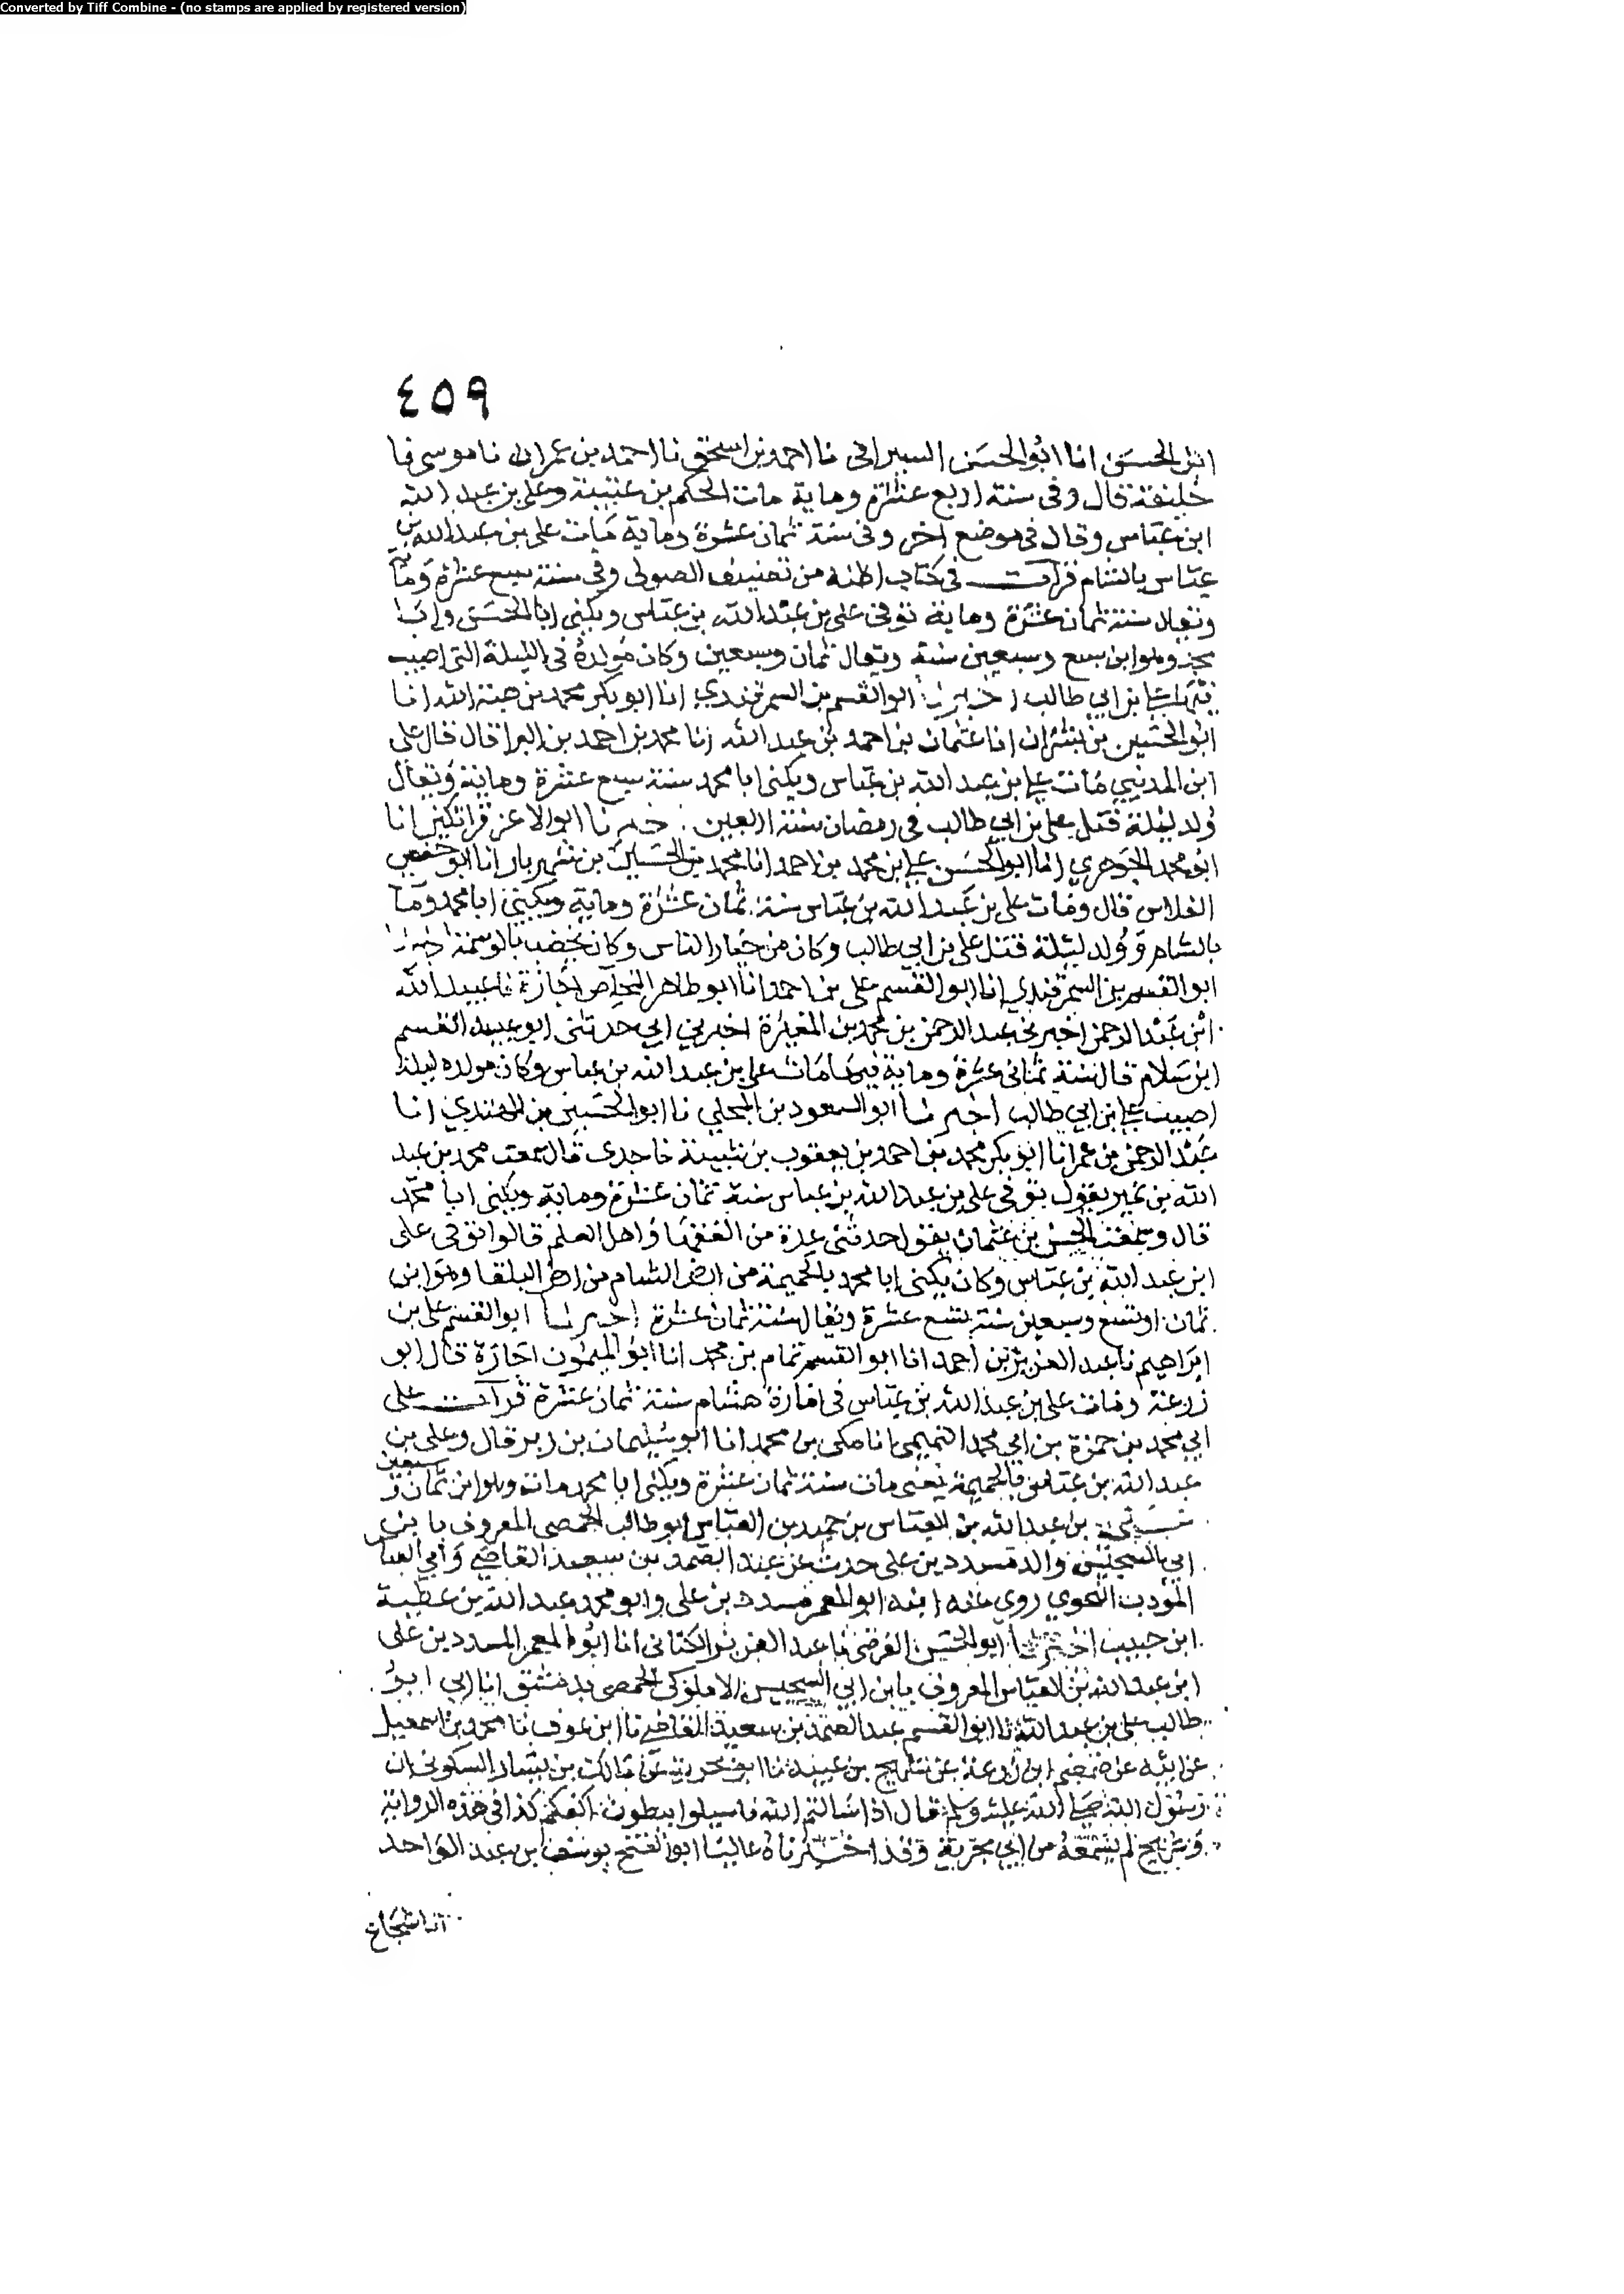 Converted by Tiff Combine - (no stamps are applied by registered version)
٤٥٩
ابن الحسن انا ابو الحسن السيرافي نا احمد بن اسحق نا احمد بن عمران نا موسى نا
خليفة قال وفي سنة اربع عشرة وماية مات الحكم بن عتيبة وعلي بن عبد الله
ابن عباس وقال في موضع اخر وفي سنة ثمان عشرة وماية مات علي بن عبد الله بن
عباس بالشام قرات في كتاب اظنه من تصنيف الصولي وفي سنة سبع عشرة وماية
ويقال سنة ثمان عشرة وماية توفي علي بن عبد الله بن عباس ويكنى ابا الحسن وابا
محمد وهو ابن سبع وسبعين سنة ويقال ثمان وسبعين وكان مولده في الليلة التي اصيب
فيها علي بن ابي طالب اخبرنا ابو القسم بن السمرقندي انا ابو بكر محمد بن هبة الله انا
ابو الحسين بن بشران انا عثمان بن احمد بن عبد الله نا محمد بن احمد بن البرا قال قال علي
ابن المديني مات علي بن عبد الله بن عباس ويكنى ابا محمد سنة سبع عشرة وماية ويقال
ولد ليلة قتل علي بن ابي طالب في رمضان سنة اربعين . خبرنا ابو الاعز قراتكين انا
ابو محمد الجوهري انا ابو الحسن علي بن محمد بن احمد انا محمد بن الحسين بن شهريار انا ابو حفص
الفلاس قال ومات علي بن عبد الله بن عباس سنة ثمان عشرة وماية ويكنى ابا محمد ومات
بالشام وولد ليلة قتل علي بن ابي طالب وكان من خيار الناس وكان يخضب بالوسمة اخبرنا
ابو القسم بن السمرقندي انا ابو القسم علي بن احمد انا ابو طاهر المخلص اجازة نا عبيد الله
ابن عبد الرحمن اخبرني عبد الرحمن بن محمد بن المغيرة اخبرني ابي حدثني ابو عبيد القسم
ابن سلام قال سنة ثماني عشرة وماية فيها مات علي بن عبد الله بن عباس وكان مولده ليلة
اصيب علي بن ابي طالب اخبرنا ابو السعود بن المجلي نا ابو الحسين بن المهتدي انا
عبد الرحمن بن عمر انا ابو بكر محمد بن احمد بن يعقوب بن شيبة نا جدي قال سمعت محمد بن عبد
الله بن نمير يقول توفي علي بن عبد الله بن عباس سنة ثمان عشرة وماية ويكنى ابا محمد
قال وسمعت الحسن بن عثمان يقول حدثني عدة من الفقها واهل العلم قالوا توفي علي
ابن عبد الله بن عباس وكان يكنى ابا محمد بالحميمة من ارض الشام من ارض البلقا وهو ابن
ثمان او تسع وسبعين سنة تسع عشرة ويقال سنة ثمان عشرة اخبرنا ابو القسم علي بن
ابراهيم نا عبد العزيز بن احمد انا ابو القسم تمام بن محمد انا ابو الميمون اجازة قال ابو
زرعة ومات علي بن عبد الله بن عباس في امارة هشام سنة ثمان عشرة قرات على
ابي محمد بن حمزة بن ابي محمد التميمي انا مكي بن محمد انا ابو سليمان بن زبر قال وعلي بن
عبد الله بن عباس بالحميمة يعني مات سنة ثمان عشرة ويكنى ابا محمد مات وهو ابن ثمان و
سبعين
بن عبد الله بن العباس بن حميد بن العباس ابو طالب الحمصي المعروف بابن
ابي السجيس والد مسدد بن علي حدث عن عبد الصمد بن سعيد القاضي وابي العباس
المؤدب النحوي روى عنه ابنه ابو المعمر مسدد بن علي وابو محمد عبد الله بن عطية
ابن حبيب اخبرنا ابو الحسن الفرضي نا عبد العزيز الكتاني انا ابو المعمر المسدد بن علي
ابن عبد الله بن العباس المعروف بابن ابي السجيس الاملوكي الحمصي بدمشق انا ابي ابو
طالب علي بن عبد الله نا ابو القسم عبد الصمد بن سعيد القاضي نا ابن عوف نا محمد بن اسمعيل
عن ابيه عن ضمضم ابن زرعة عن شريح بن عبيد نا ابو بحرية عن مالك بن يسار السكوني ان
رسول الله صلى الله عليه وسلم قال اذا سالتم الله فاسيلوا ببطون اكفكم كذا في هذه الرواية
وشريح لم يسمعه من ابي بحرية وقد اخبرناه عاليا ابو الفتح يوسف بن عبد الواحد
انا شجاع